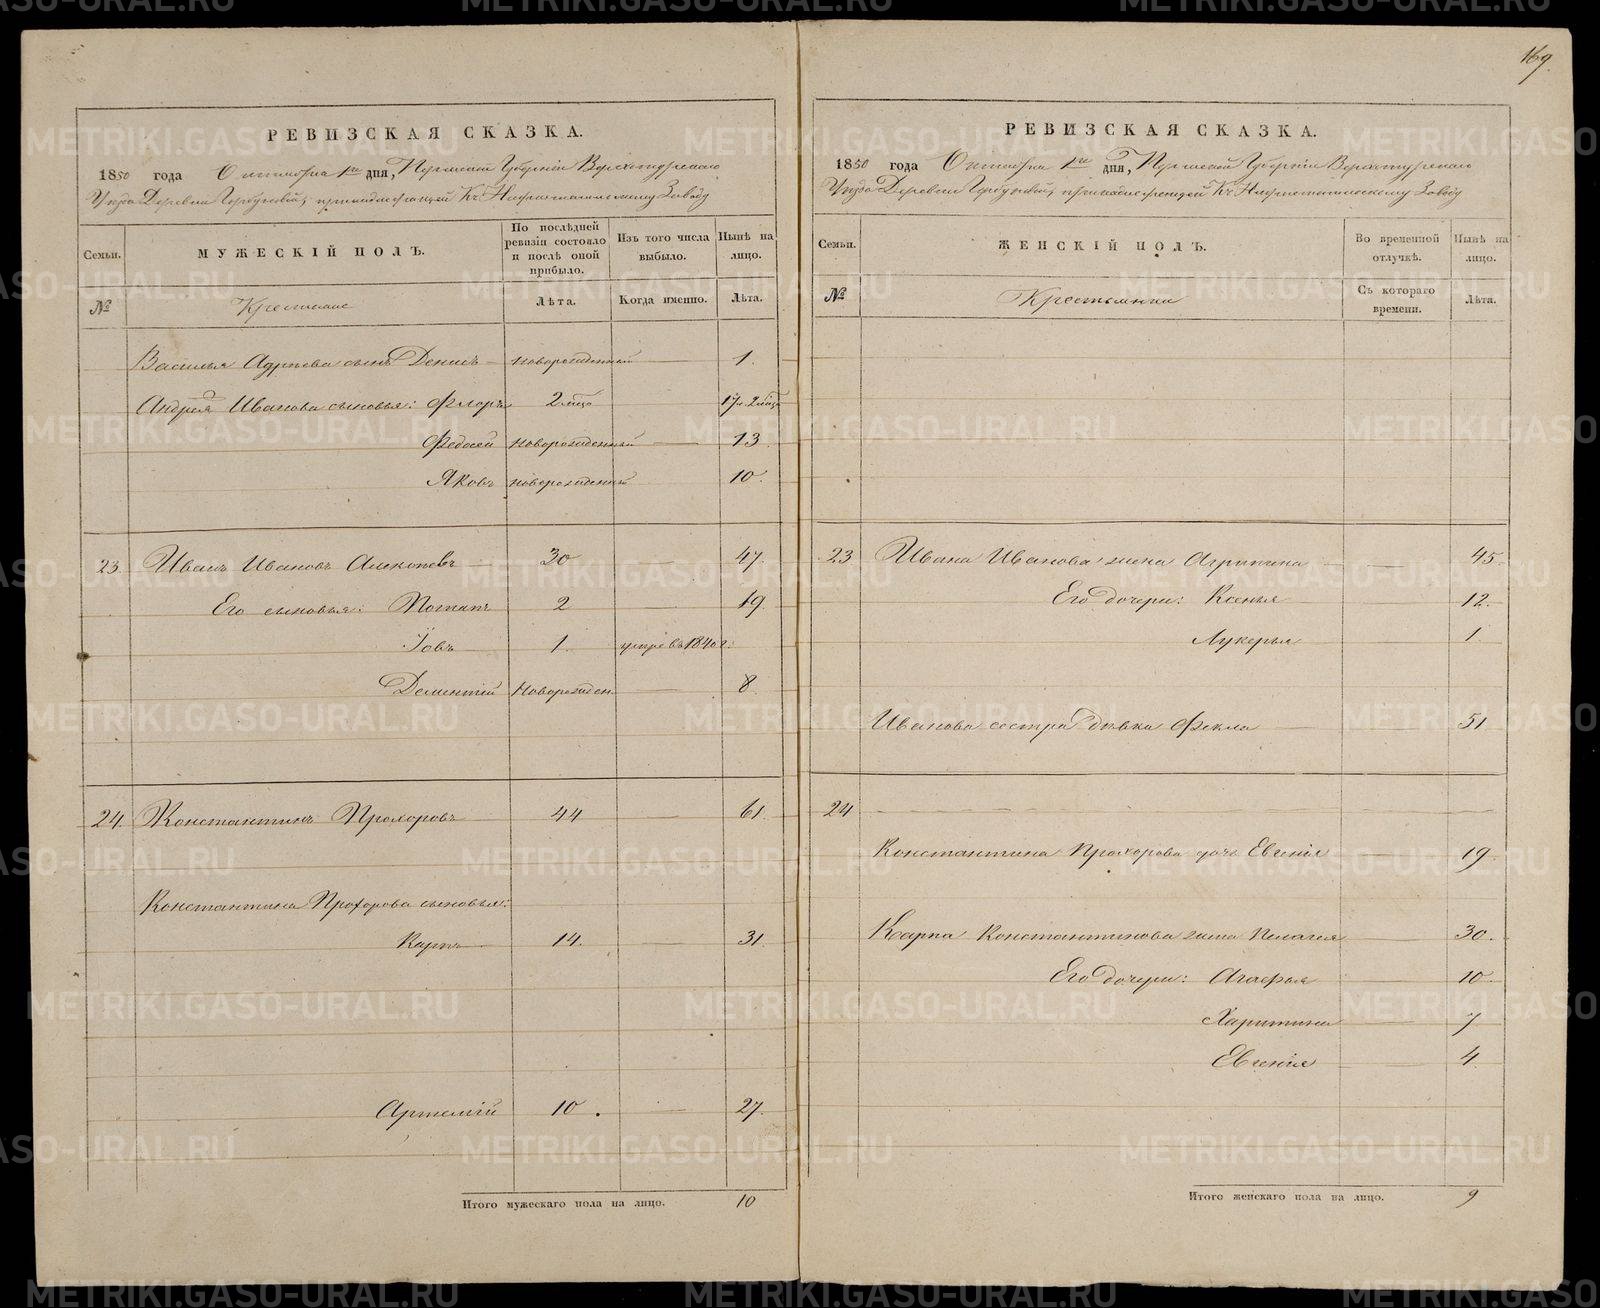 169
РЕВИЗСКАЯ СКАЗКА.
1850 года Октября 1го дня, Пермской Губерніи Верхотурскаго
Уѣзда Деревни принадлежащей Къ Заводу
Семьи.
МУЖЕСКІЙ ПОЛЪ.
По послѣдней ревизіи состояло и послѣ оной прибыло.
Изъ того числа выбыло.
Нынѣ на лицо.
№
Крестьяне
Лѣта.
Когда именно.
Лѣта.
Василья сынъ Денисъ новорожденный 1.
Андрея Иванова сыновья: Флоръ 2 мѣсц 17 л. 2 мѣсц
Федосей новорожденный 13
Яковъ новорожденный 10.
23. Иванъ Ивановъ 30 47.
Его сыновья: Потапъ 2 19.
Іовъ 1. умре въ 1840 г:
Дементій Новорожден. 8.
24. Константинъ Прохоровъ 44 61.
Константина Прохорова сыновья:
Карпъ 14. 31.
Артемій 10. 27.
Итого мужескаго пола на лицо. 10
РЕВИЗСКАЯ СКАЗКА.
1850 года Октября 1го дня, Пермской Губерніи Верхотурскаго
Уѣзда Деревни принадлежащей Къ Заводу
Семьи.
ЖЕНСКІЙ ПОЛЪ.
Во временной отлучкѣ.
Нынѣ на лицо.
№
Крестьянки
Съ котораго времени.
Лѣта.
23 Ивана Иванова жена Агрипина 45.
Его дочери: Ксенья 12.
Лукерья 1
Иванова сестра дѣвка Фекла 51
24
Константина Прохорова дочь Евгенія 19
Карпа Константинова жена Пелагея 30.
Его дочери: Агафья 10.
Харитина 7
Евгенія 4
Итого женскаго пола на лицо. 9
METRIKI.GASO-URAL.RU